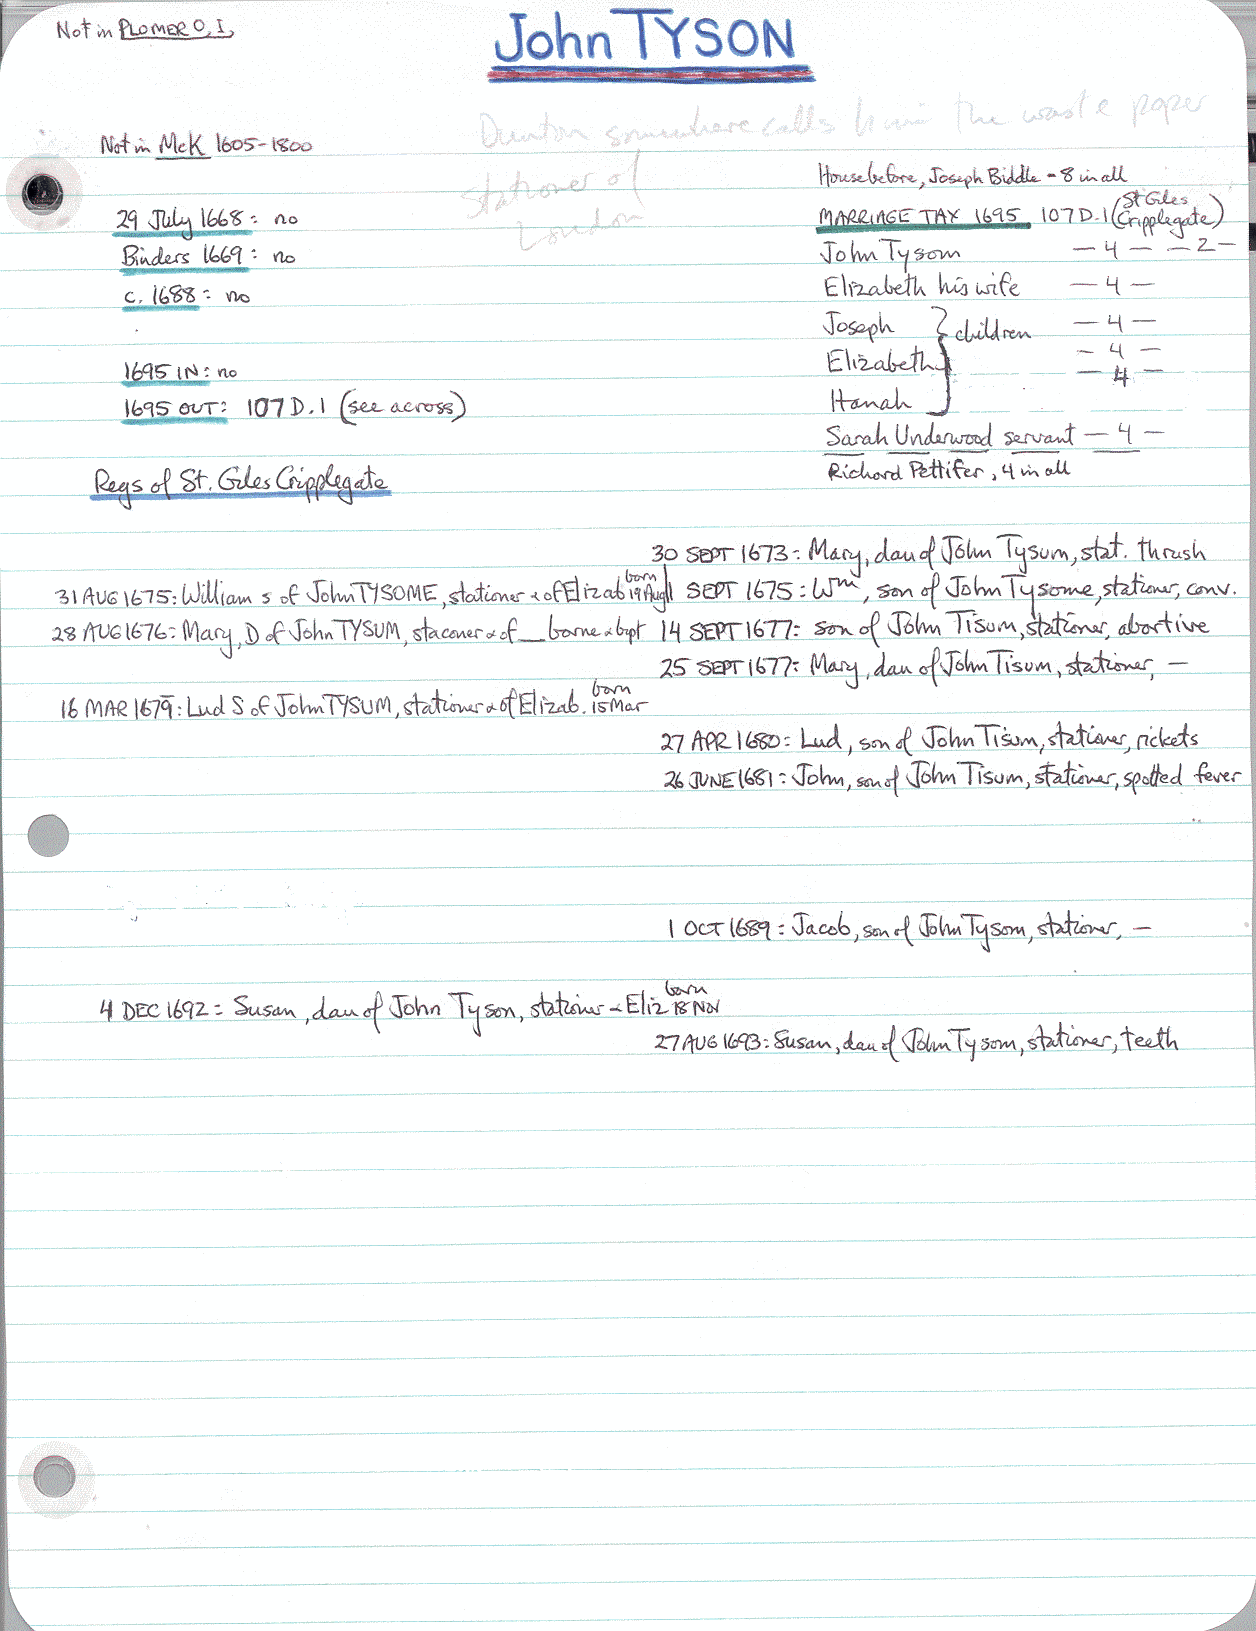 Not in PLOMER O, I,
John TYSON
Dunton somewhere calls him the waste paper
stationer of
London
Not in McK 1605-1800
29 July 1668: no
Binders 1669: no
c. 1688: no
1695 IN: no
1695 OUT: 107 D.1 (see across)
House before, Joseph Biddle - 8 in all
MARRIAGE TAX 1695 107 D.1 (St Giles Cripplegate)
John Tysom — 4 — — 2 —
Elizabeth his wife — 4 —
Joseph } children — 4 —
Elizabeth — 4 —
Hanah — 4 —
Sarah Underwood servant — 4 —
Richard Pettifer, 4 in all
Regs of St. Giles Cripplegate
30 SEPT 1673: Mary, dau of John Tysum, stat. thrush
31 AUG 1675: William s of John TYSOME, stationer & of Elizab born 19 Aug
1 SEPT 1675: Wm, son of John Tysome, stationer, conv.
28 AUG 1676: Mary, D of John TYSUM, staconer & of __ borne & bapt
14 SEPT 1677: son of John Tisum, stationer, abortive
25 SEPT 1677: Mary, dau of John Tisum, stationer, —
16 MAR 1679: Lud S of John TYSUM, stationer & of Elizab. born 15 Mar
27 APR 1680: Lud, son of John Tisum, stationer, rickets
26 JUNE 1681: John, son of John Tisum, stationer, spotted fever
1 OCT 1689: Jacob, son of John Tysom, stationer, —
4 DEC 1692: Susan, dau of John Tyson, stationer & Eliz born 18 Nov
27 AUG 1693: Susan, dau of John Tysom, stationer, teeth